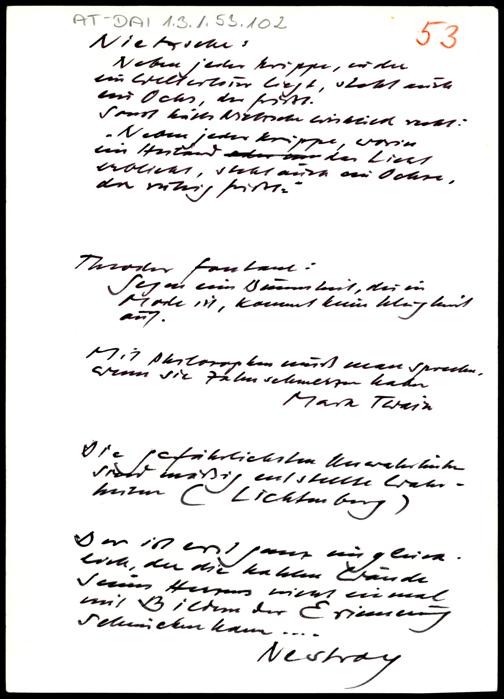 AT-DAI 1.3.1.53.102
53
Nietzsche:
Neben jeder Krippe, in der
ein Welterlöser liegt, steht auch
ein Ochs, der frißt.
Sonst hätte Nietzsche wirklich recht:
"Neben jeder Krippe, worin
ein Heiland das Licht
erblickt, steht auch ein Ochse,
der ruhig frißt."
Theodor Fontane:
Gegen eine Dummheit, die in
Mode ist, kommt keine Klugheit
auf.
Mit Philosophen muß man sprechen,
wenn sie Zahnschmerzen haben
Mark Twain
Die gefährlichsten Unwahrheiten
sind mäßig entstellte Wahr-
heiten (Lichtenberg)
Der ist erst ganz unglück-
lich, der die kahlen Wände
seines Herzens nicht einmal
mit Bildern der Erinnerung
schmücken kann ....
Nestroy